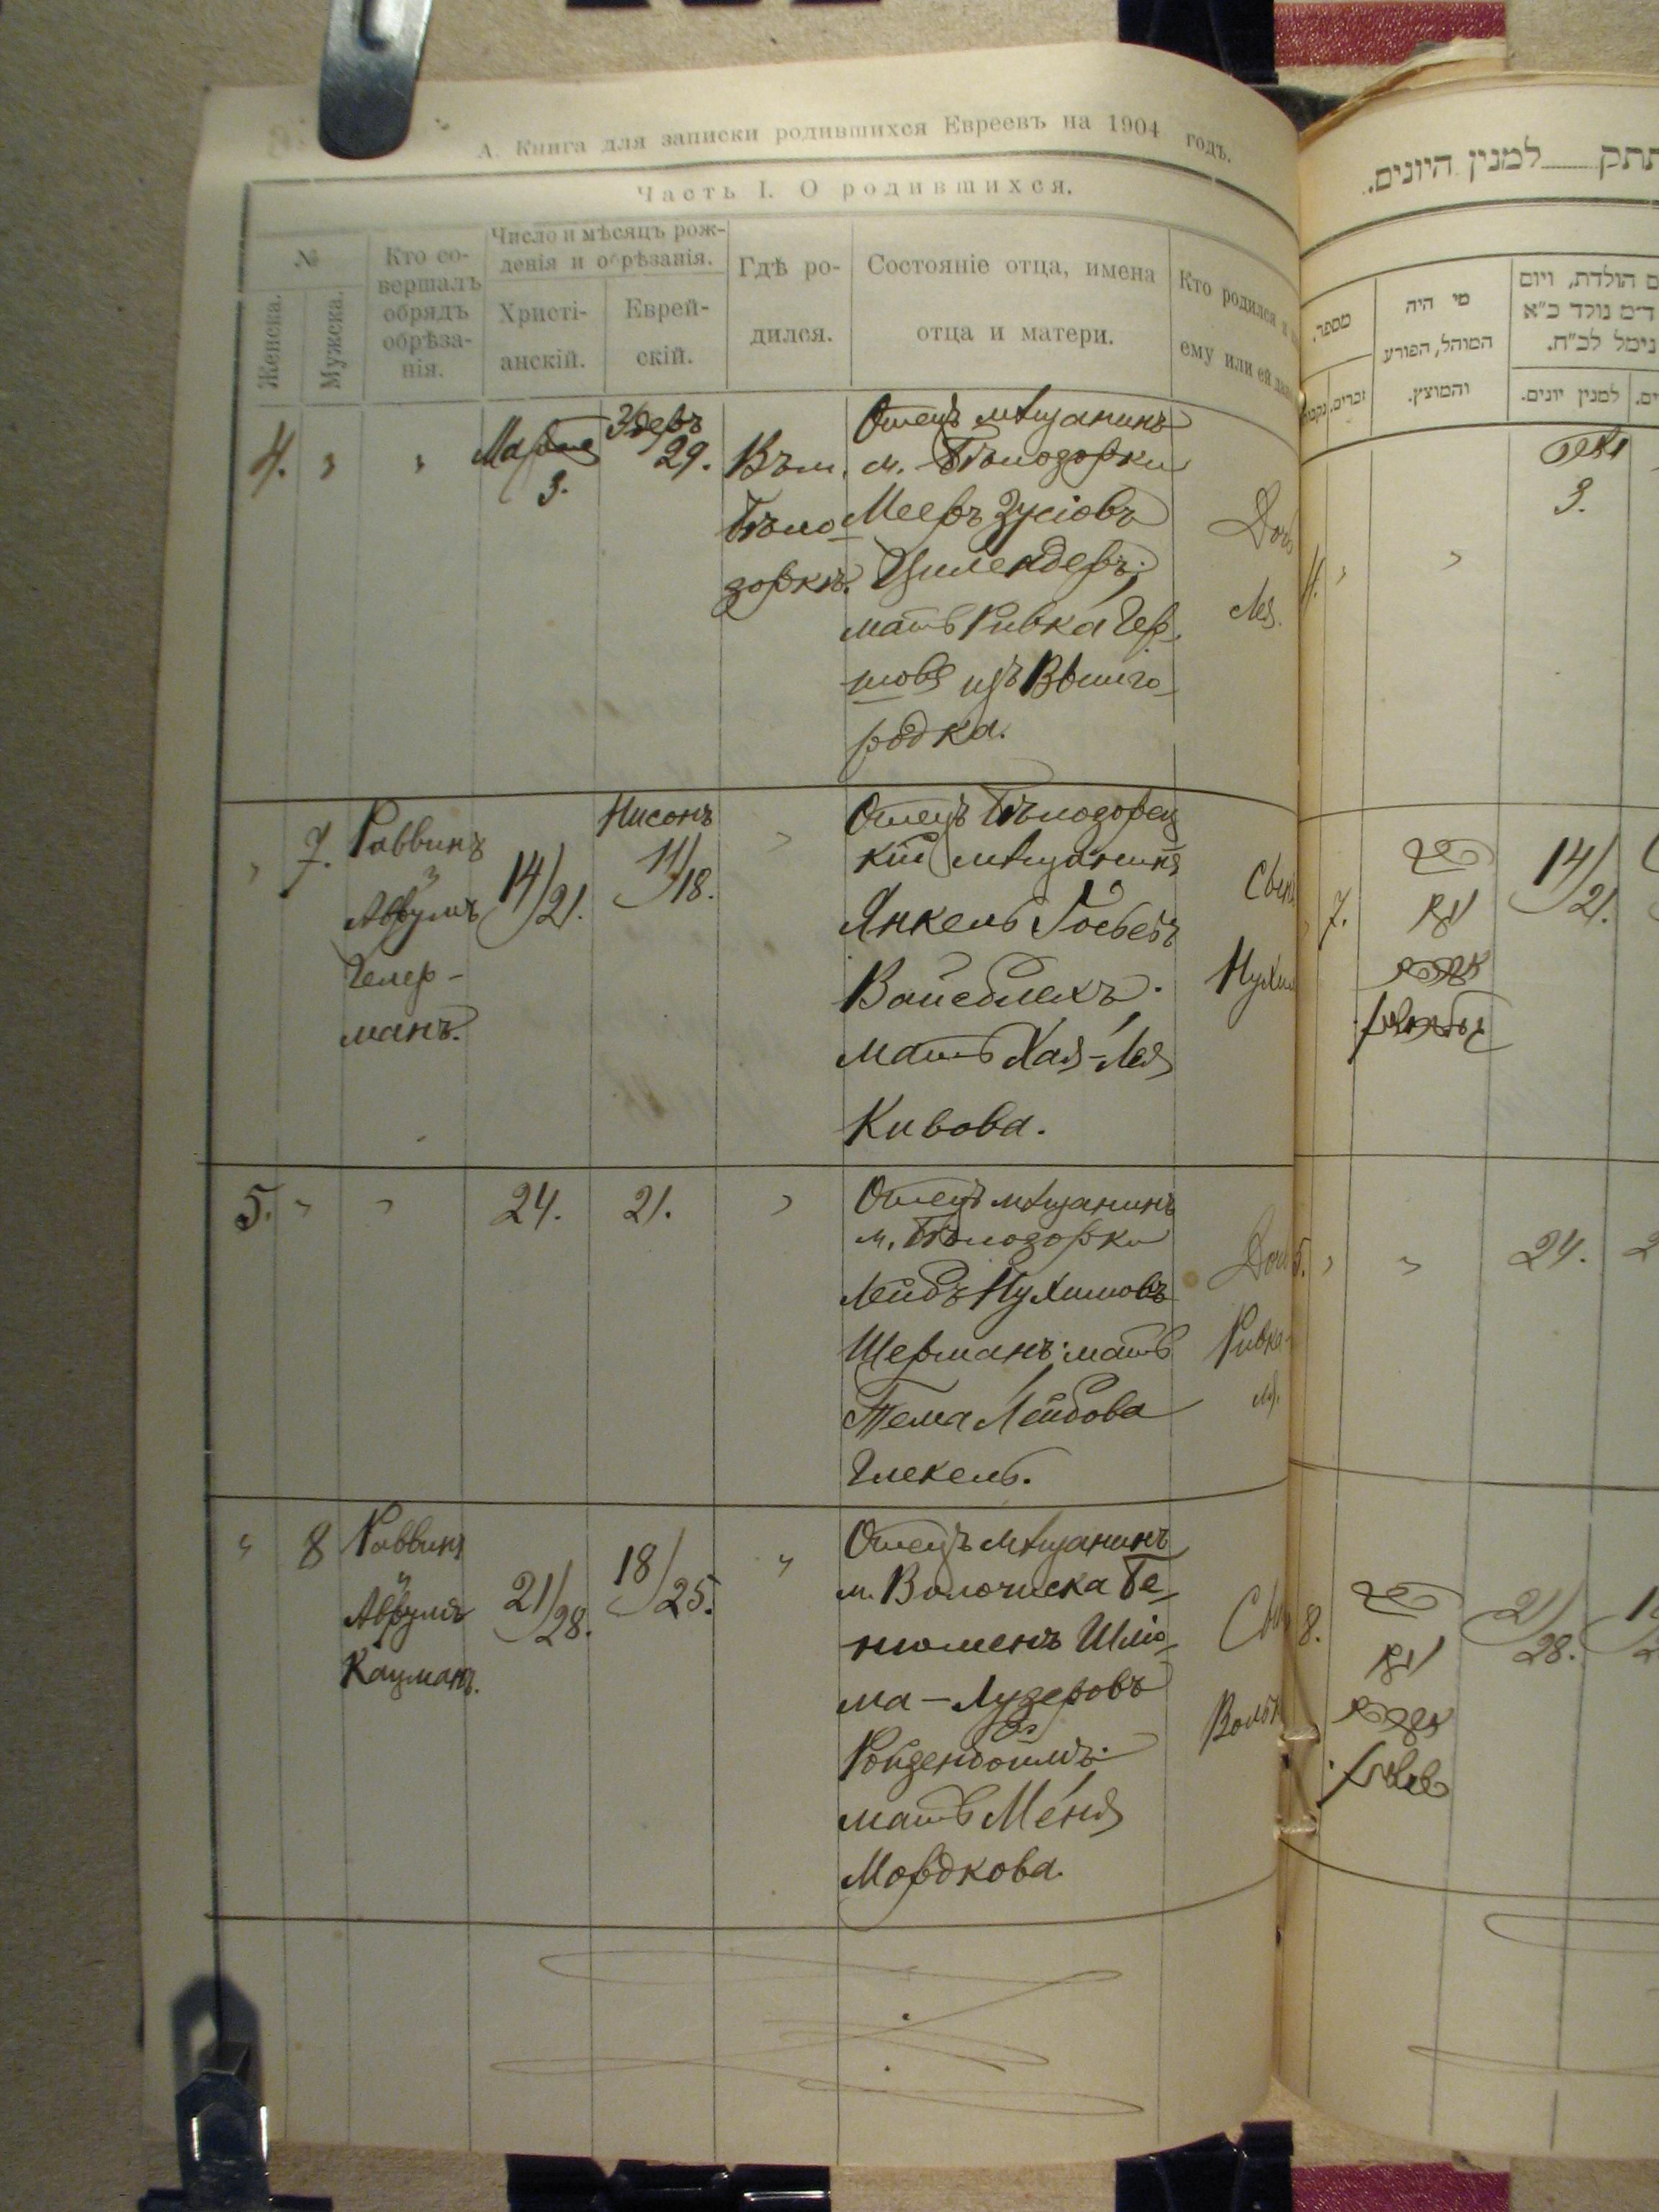 А. Книга для записки родившихся Евреевъ на 1904 годъ.
Часть I. О родившихся.
№
Женска.
Мужска.
Кто со-
вершалъ
обрядъ
обрѣза-
нія.
Число и мѣсяцъ рож-
денія и обрѣзанія.
Христі-
анскій.
Еврей-
скій.
Гдѣ ро-
дился.
Состояніе отца, имена
отца и матери.
Кто родился и
ему или ей
4. " "
Марта
3.
29.
Въ м.
Бѣло-
зоркѣ.
Отецъ мѣщанинъ
м. Бѣлозорки
Мееръ Зусіовъ
Цилендеръ;
мать Ривка Гер-
шова изъ Вышго-
родка.
Дочь
Лея.
" 7.
Раввинъ
Аврумъ
Гелер-
манъ.
14/21.
Нисонъ
11/18.
"
Отецъ Бѣлозорец
кій мѣщанинъ
Янкель Іосьевъ
Вайсблехъ;
мать Хая-Лея
Кивова.
Сынъ
Нухим
5. " "
24.
21.
"
Отецъ мѣщанинъ
м. Бѣлозорки
Лейбъ Нухимовъ
Шерманъ; мать
Тема Лейбова
Глекель.
Дочь
Ривка-
" 8
Раввинъ
Аврумъ
Кацманъ.
21/28.
18/25.
"
Отецъ мѣщанинъ
м. Волочиска Бе-
нюменъ Шлио-
ма-Лузеровъ
Ройзенбоймъ;
мать Меня
Мордкова.
Сынъ
Вольф
תתק למנין היונים.
מספר.
זכרים.
נקבות
מי היה
המוהל, הפורע
והמוצץ.
ם הולדת, ויום
ד״מ נולד כ״א
נימל לכ״ח.
למנין יונים.
4. " "
3.
7.
הרב
14/21.
5. " "
24.
8.
הרב
21/28.